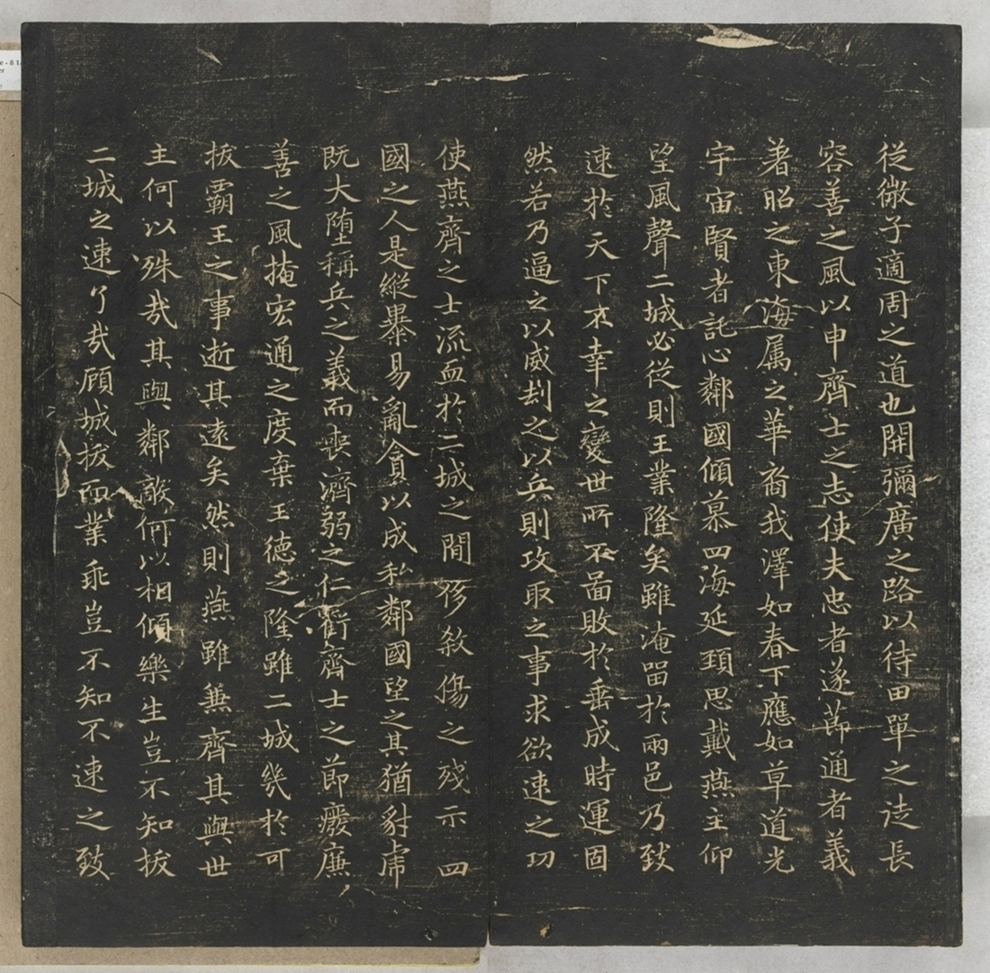 從微子適周之道也開彌廣之路以待田單之徒長
容善之風以申齊士之志使夫忠者遂節通者義
著昭之東海属之華裔我澤如春下應如草道光
宇宙賢者託心鄰國傾慕四海延頚思戴燕主仰
望風聲二城必從則王業隆矣雖淹留於兩邑乃致
速於天下不幸之變世所不圖敗於垂成時運固
然若乃逼之以威劫之以兵則攻取之事求欲速之功
使燕齊之士流血於二城之間侈殺傷之殘示四
國之人是縱暴易亂貪以成私鄰國望之其猶豺虎
既大墮稱兵之義而喪濟弱之仁虧齊士之節廢廉
善之風掩宏通之度棄王德之隆雖二城幾於可
拔霸王之事逝其遠矣然則燕雖兼齊其與世
主何以殊哉其與鄰敵何以相傾樂生豈不知拔
二城之速了哉顾城拔而業乖豈不知不速之致